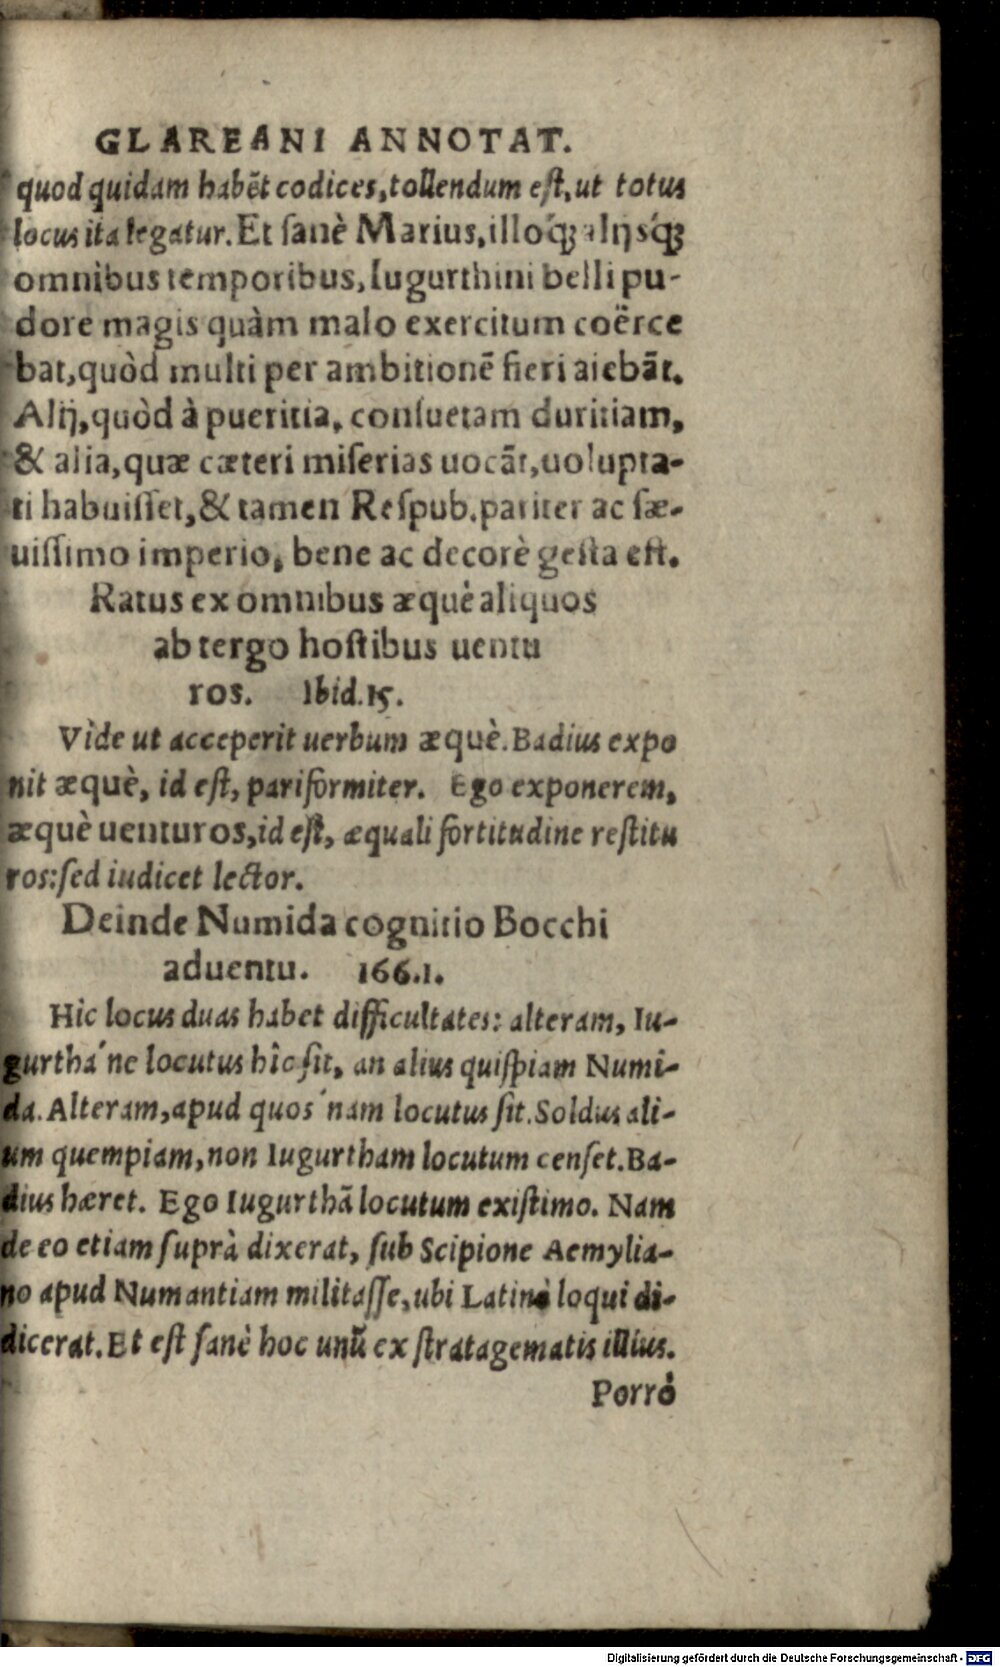 GLAREANI ANNOTAT.
quod quidam habēt codices, tollendum est, ut totus
locus ita legatur. Et sanè Marius, illoq́; alijsq́;
omnibus temporibus, Iugurthini belli pu-
dore magis quàm malo exercitum coërce
bat, quòd multi per ambitionē fieri aiebāt.
Alij, quòd à pueritia, consuetam duritiam,
& alia, quæ cæteri miserias uocāt, uolupta-
ti habuisset, & tamen Respub. pariter ac sæ-
uissimo imperio, bene ac decorè gesta est.
Ratus ex omnibus æquè aliquos
ab tergo hostibus uentu
ros. Ibid. 15.
Vìde ut acceperit uerbum æquè. Badius expo
nit æquè, id est, pariformiter. Ego exponerem,
æquè uenturos, id est, æquali fortitudine restitu
ros: sed iudicet lector.
Deinde Numida cognitio Bocchi
aduentu. 166.1.
Hic locus duas habet difficultates: alteram, Iu-
gurtha'ne locutus hîc sit, an alius quispiam Numi-
da. Alteram, apud quos'nam locutus sit. Soldus ali-
um quempiam, non Iugurtham locutum censet. Ba-
dius hæret. Ego Iugurthā locutum existimo. Nam
de eo etiam suprà dixerat, sub Scipione Aemylia-
no apud Numantiam militasse, ubi Latinè loqui di-
dicerat. Et est sanè hoc unū ex stratagematis illius.
Porrò
Digitalisierung gefördert durch die Deutsche Forschungsgemeinschaft - DFG